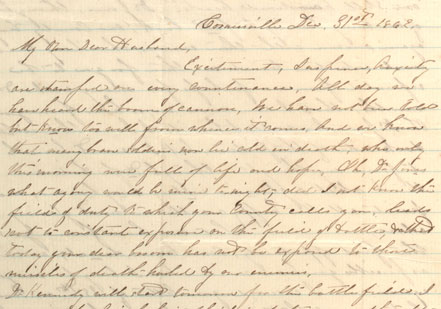 Cornersville Dec. 31st 1862
My Own Dear Husband,
Excitement, Suspense, Anxiety
are stamped on every countenance. All day we
have heard the boom of cannon, We have not been told
but know too well from whence it comes, And we know
that many brave soldiers now lie cold in death, who only
this morning were full of life and hope, Oh,
what agony would be mine to night, did I not know the
field of duty to which your Country calls you, leads
not to constant exposure on the field of battle, & that
today your dear bosom has not be exposed to those
missiles of death hurled by our enemies.
Dr Kennedy will start tomorrow for the battle field. I